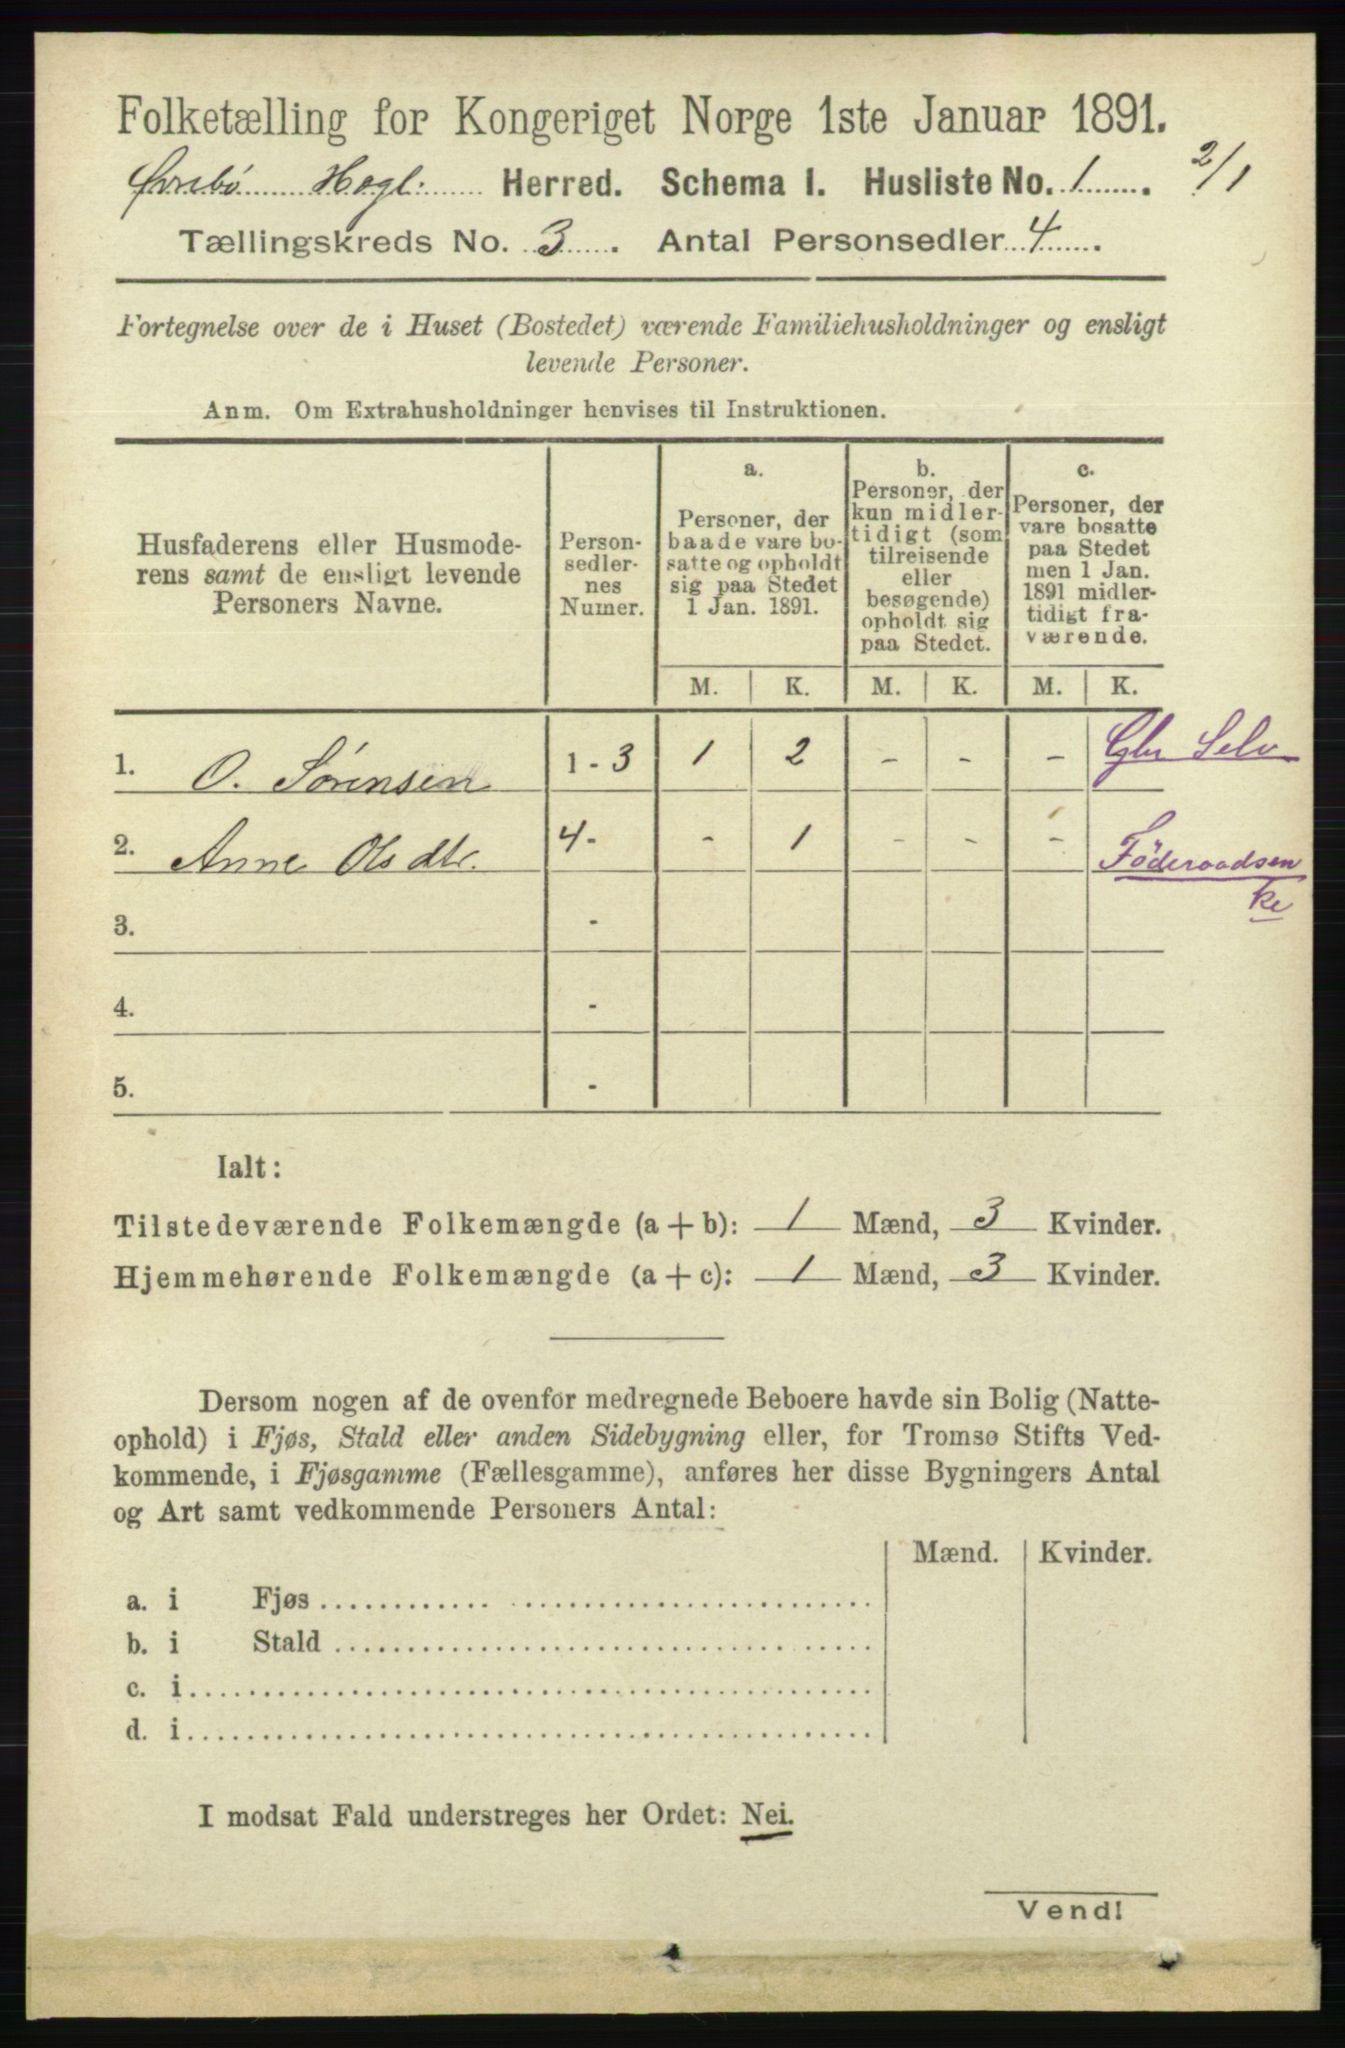 Folketælling for Kongeriget Norge 1ste Januar 1891.
Øvrebø Hægl. Herred. Schema I. Husliste No. 1. 2/1
Tællingskreds No. 3. Antal Personsedler 4.
Fortegnelse over de i Huset (Bostedet) værende Familiehusholdninger og ensligt
levende Personer.
Anm. Om Extrahusholdninger henvises til Instruktionen.
Husfaderens eller Husmode-
rens samt de ensligt levende
Personers Navne.
Person-
sedler-
nes
Numer.
a.
Personer, der
baade vare bo-
satte og opholdt
sig paa Stedet
1 Jan. 1891.
b.
Personer, der
kun midler-
tidigt (som
tilreisende
eller
besøgende)
opholdt sig
paa Stedet.
c.
Personer, der
vare bosatte
paa Stedet
men 1 Jan.
1891 midler-
tidigt fra-
værende.
M. K. M. K. M. K.
1. O. Sørensen 1 - 3 1 2 - - - Gbr Selv
2. Anne Olsdtr. 4 - - 1 - - - Föderaadsen
ke
3. -
4. -
5. -
Ialt:
Tilstedeværende Folkemængde (a + b): 1 Mænd, 3 Kvinder.
Hjemmehørende Folkemængde (a + c): 1 Mænd, 3 Kvinder.
Dersom nogen af de ovenfor medregnede Beboere havde sin Bolig (Natte-
ophold) i Fjøs, Stald eller anden Sidebygning eller, for Tromsø Stifts Ved-
kommende, i Fjøsgamme (Fællesgamme), anføres her disse Bygningers Antal
og Art samt vedkommende Personers Antal:
Mænd. Kvinder.
a. i Fjøs
b. i Stald
c. i
d. i
I modsat Fald understreges her Ordet: Nei.
Vend!